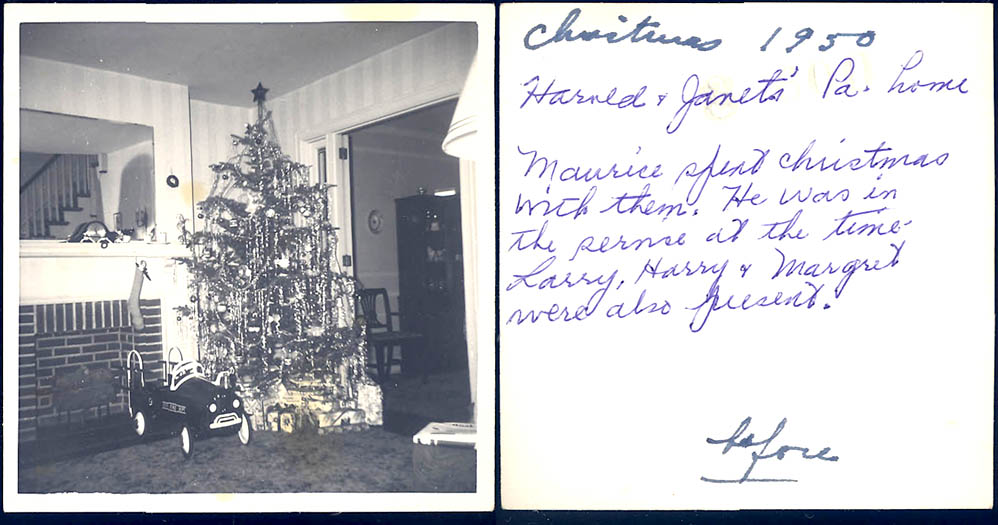 Christmas 1950
Harold & Janets' Pa. home
Maurice spent christmas
with them. He was in
the service at the time.
Larry, Harry & Margret
were also present.
before